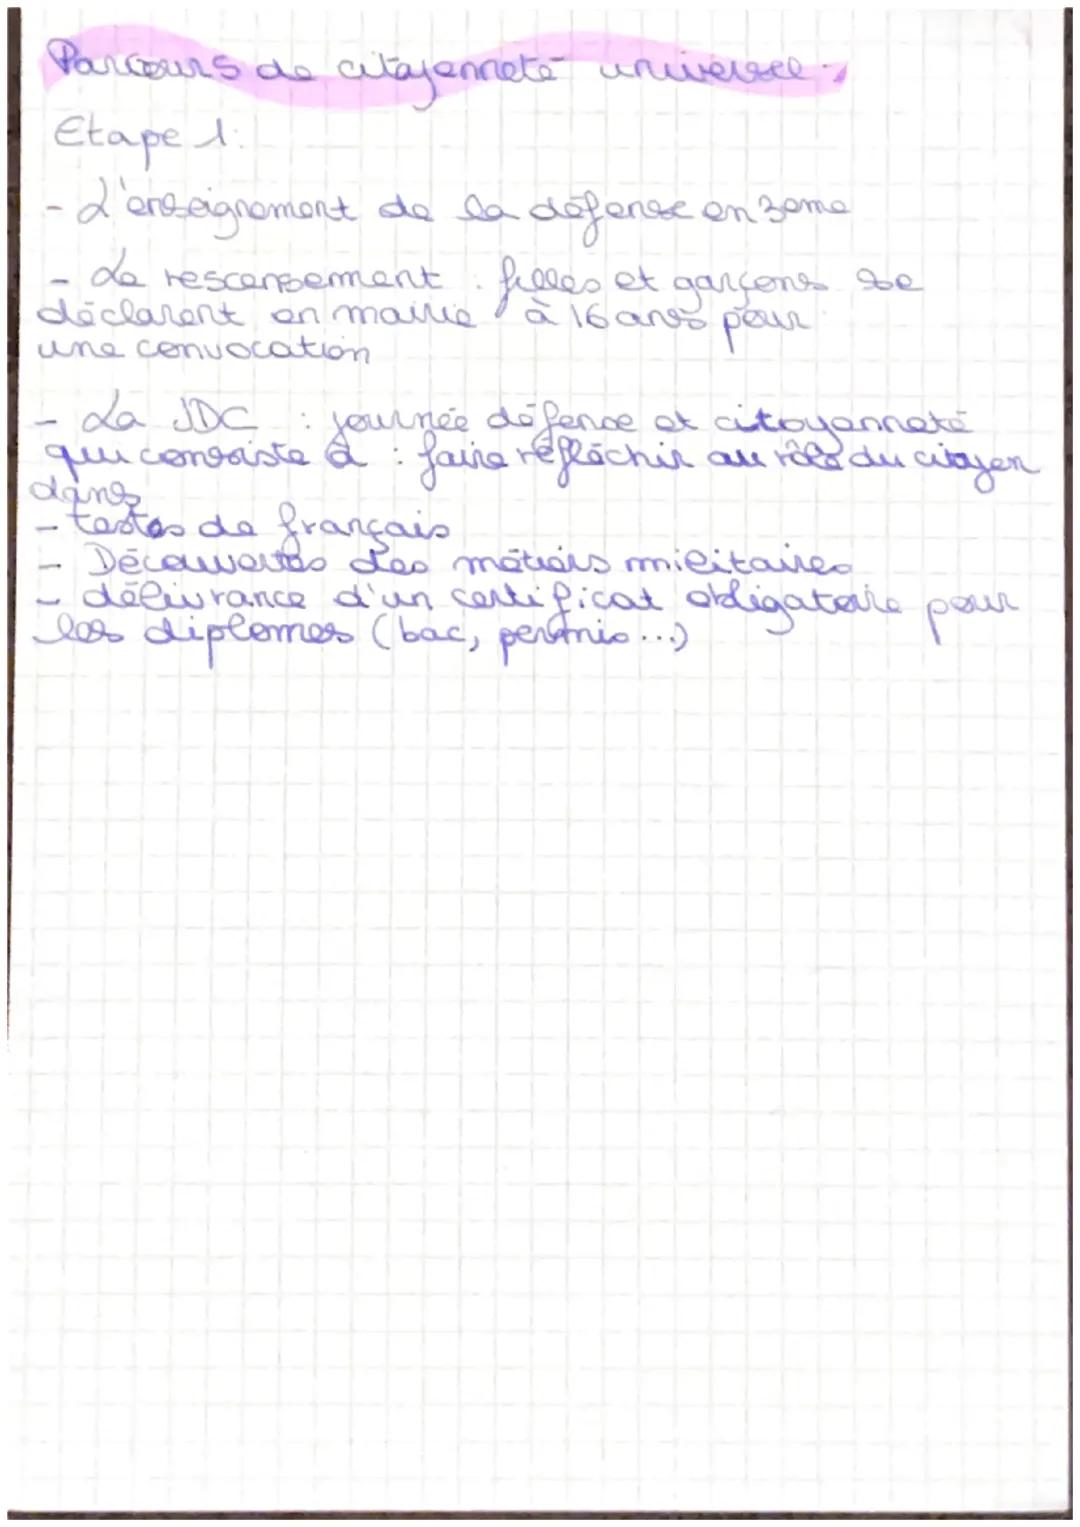 Parcours de citayenneté universel :
Etape 1:
- L'enseignement de la défense en 3eme
- Le rescensement : filles et garçons se
déclarent en mairie à 16 ans pour
une convocation
- La JDC : journée défense et citoyenneté
qui consiste à : faire réfléchir au rôle du citoyen
dans
- testes de français
- Découvertes des métiers militaires
- délivrance d'un certificat obligatoire pour
les diplomes (bac, permis...)